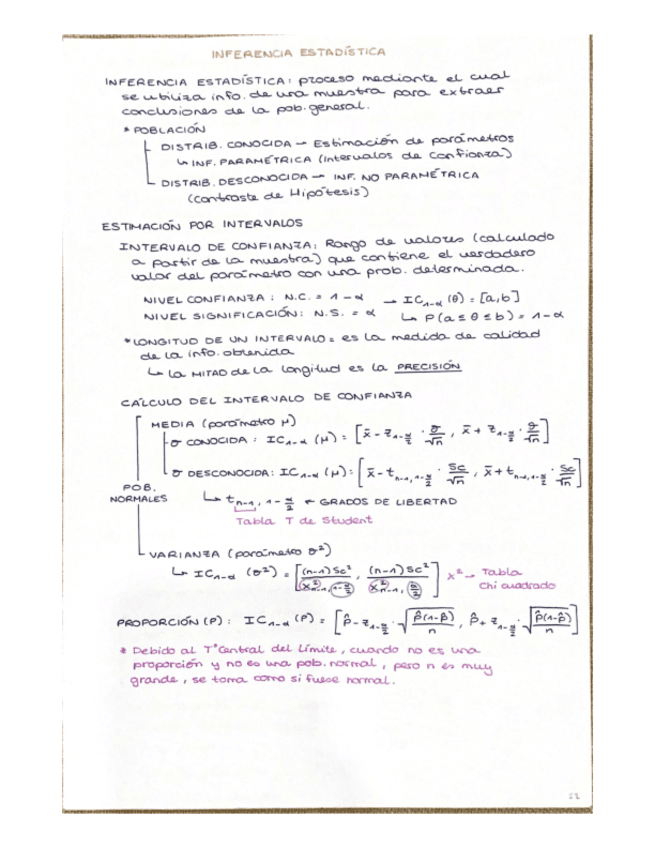 INFERENCIA ESTADÍSTICA
INFERENCIA ESTADÍSTICA: proceso mediante el cual
se utiliza info. de una muestra para extraer
conclusiones de la pob. general.
* POBLACIÓN
DISTRIB. CONOCIDA → Estimación de parámetros
↳ INF. PARAMÉTRICA (Intervalos de Confianza)
DISTRIB. DESCONOCIDA → INF. NO PARAMÉTRICA
(contraste de Hipótesis)
ESTIMACIÓN POR INTERVALOS
INTERVALO DE CONFIANZA: Rango de valores (calculado
a partir de la muestra) que contiene el verdadero
valor del parámetro con una prob. determinada.
NIVEL CONFIANZA: N.C. = 1-α → IC₁₋α (θ) = [a,b]
NIVEL SIGNIFICACIÓN: N.S. = α ↳ P(a ≤ θ ≤ b) = 1-α
* LONGITUD DE UN INTERVALO = es la medida de calidad
de la info. obtenida
↳ La MITAD de la longitud es la PRECISIÓN
CÁLCULO DEL INTERVALO DE CONFIANZA
POB. NORMALES
MEDIA (parámetro μ)
σ CONOCIDA: IC₁₋α (μ) = [x̄ - z₁₋α/₂ · σ/√n , x̄ + z₁₋α/₂ · σ/√n]
σ DESCONOCIDA: IC₁₋α (μ) = [x̄ - tₙ₋₁,₁₋α/₂ · Sc/√n , x̄ + tₙ₋₁,₁₋α/₂ · Sc/√n]
↳ tₙ₋₁, 1-α/2 ← GRADOS DE LIBERTAD
Tabla T de Student
VARIANZA (parámetro σ²)
↳ IC₁₋α (σ²) = [(n-1)Sc²/X²ₙ₋₁,₁₋α/₂ , (n-1)Sc²/X²ₙ₋₁,α/₂] X² → Tabla
Chi cuadrado
PROPORCIÓN (P): IC₁₋α (P) = [p̂ - z₁₋α/₂ · √(p̂(1-p̂)/n) , p̂ + z₁₋α/₂ · √(p̂(1-p̂)/n)]
* Debido al Tª Central del Límite, cuando no es una
proporción y no es una pob. normal, pero n es muy
grande, se toma como si fuese normal.